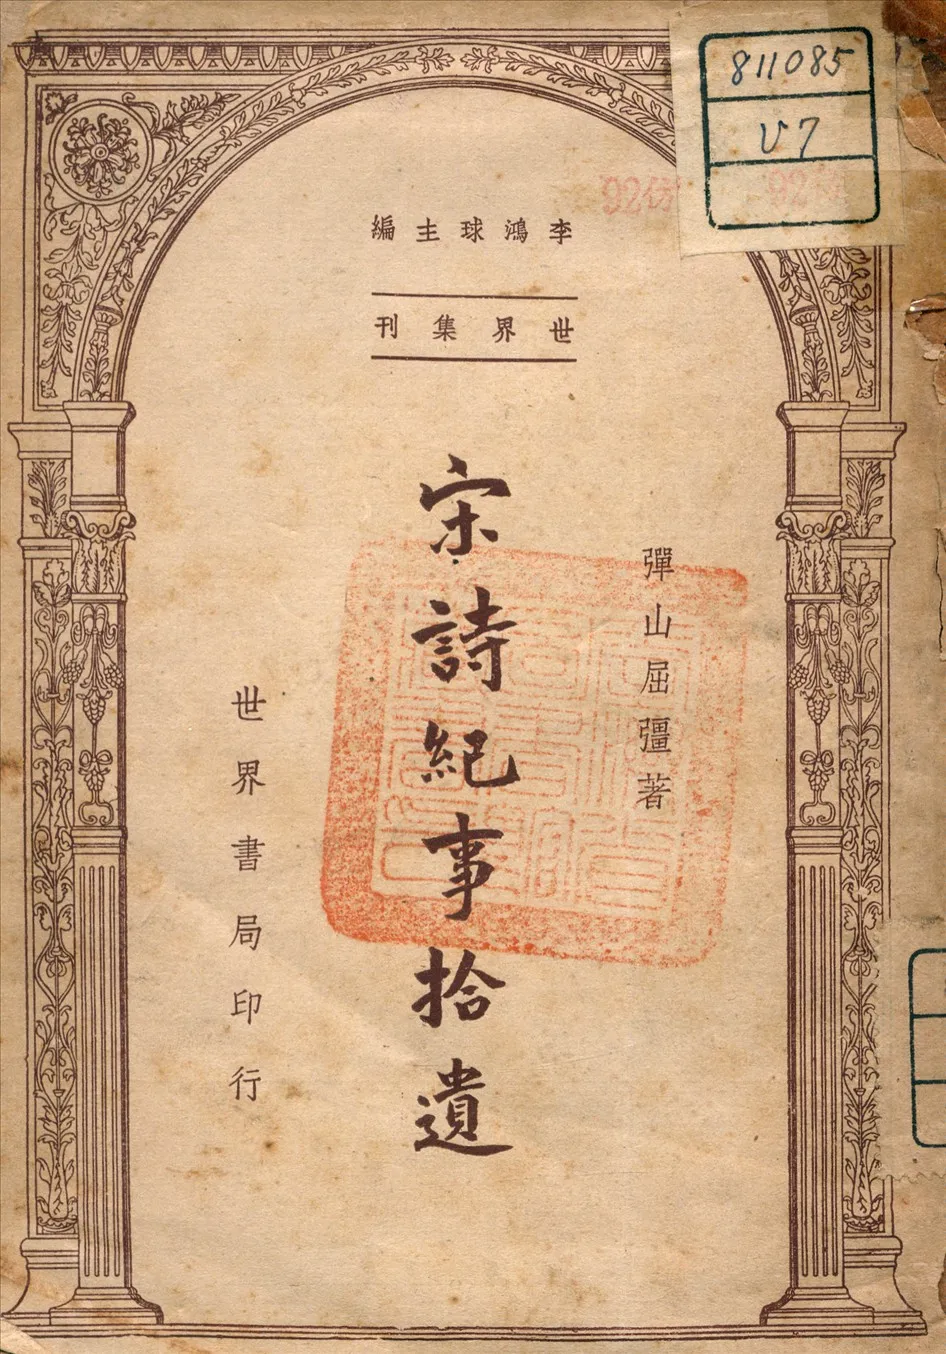 811085
V7
李鴻球主編
世界集刊
彈山屈彊著
宋詩紀事拾遺
世界書局印行